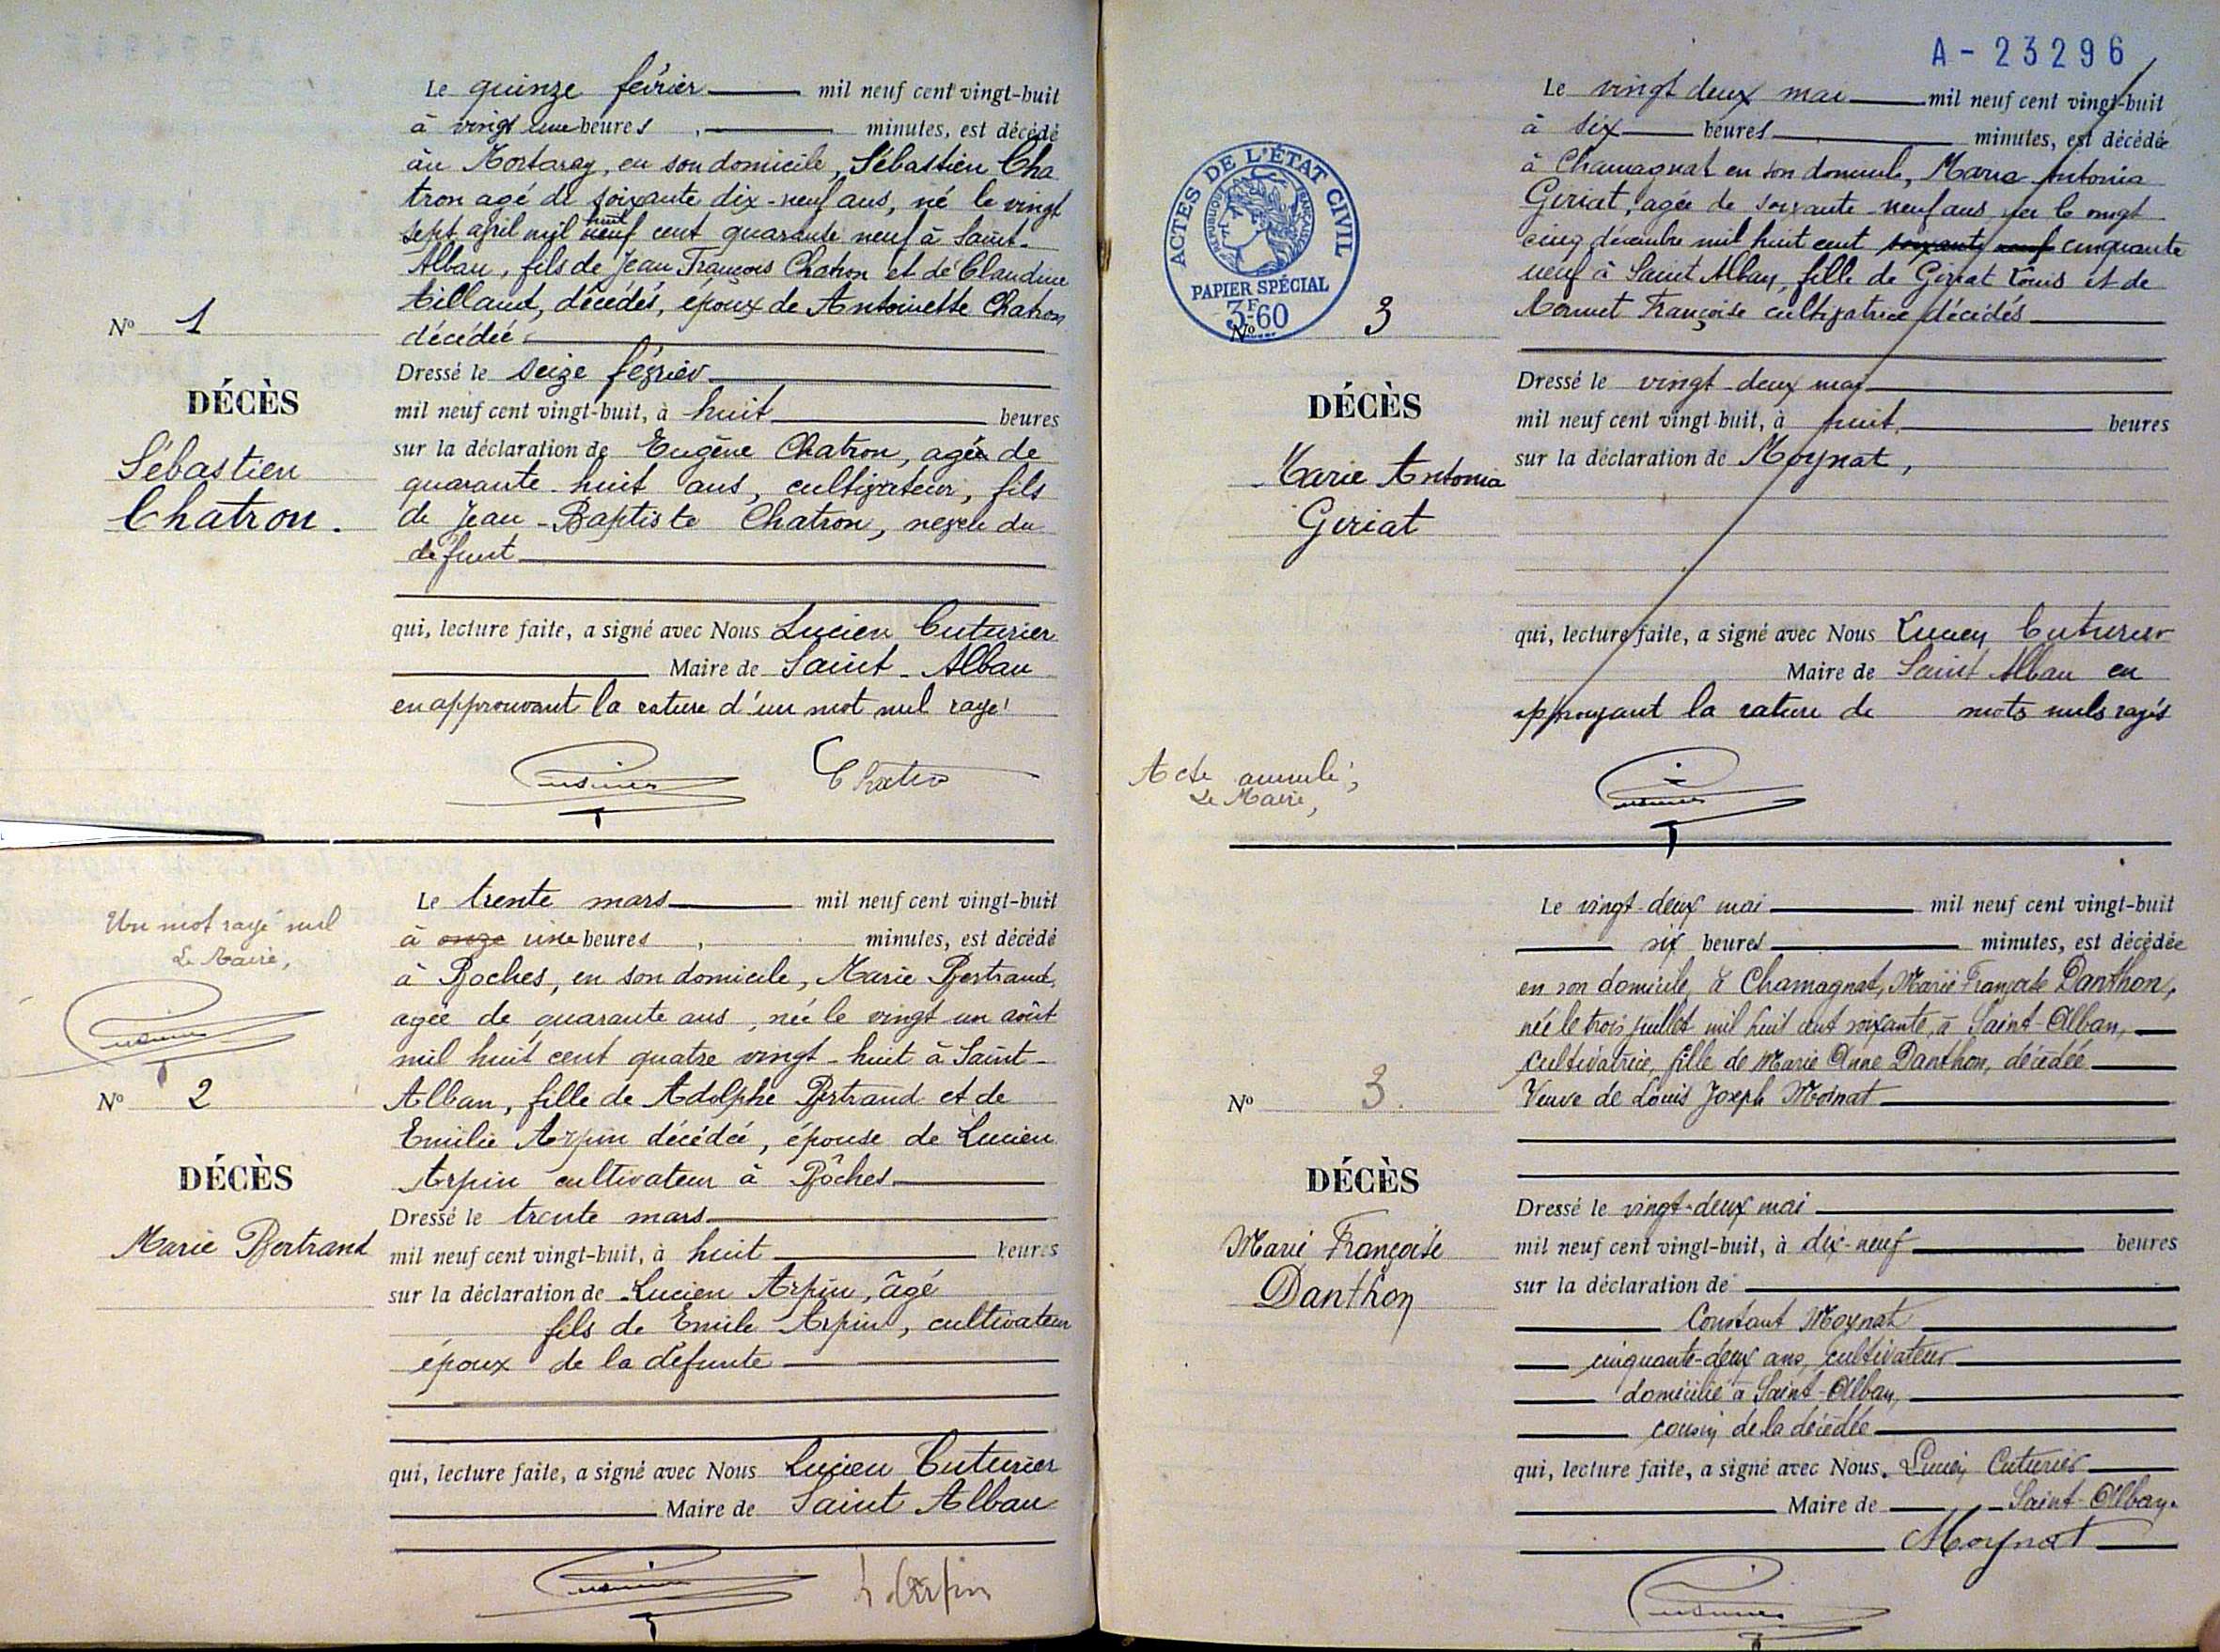 Le quinze février mil neuf cent vingt-huit
à vingt une heures , minutes, est décédé
au Mortarey, en son domicile, Sébastien Cha
tron agé de soixante dix-neuf ans, né le vingt
huit
sept april mil neuf cent quarante neuf à Saint-
Alban, fils de Jean François Chatron et de Claudine
Tilland, décédés, époux de Antoinette Chatron
décédée
N° 1
Dressé le seize février
DÉCÈS
mil neuf cent vingt-huit, à huit heures
Sébastien
Chatron.
sur la déclaration de Eugène Chatron, agée de
quarante huit ans, cultivateur, fils
de Jean-Baptiste Chatron, neveu du
défunt
qui, lecture faite, a signé avec Nous Lucien Cuturier
Maire de Saint-Alban
en approuvant la rature d'un mot nul rayé
Cuturier Chatro
Le trente mars mil neuf cent vingt-huit
Un mot rayé nul
Le Maire,
à onze une heures , minutes, est décédé
à Roches, en son domicile, Marie Bertrand,
agée de quarante ans, née le vingt un août
mil huit cent quatre vingt-huit à Saint-
Cuturier
N° 2
Alban, fille de Adolphe Bertrand et de
Emilie Arpin décédée, épouse de Lucien
Arpin cultivateur à Rôches
DÉCÈS
Dressé le trente mars
Marie Bertrand
mil neuf cent vingt-huit, à huit heures
sur la déclaration de Lucien Arpin, âgé
fils de Emile Arpin, cultivateur
époux de la défunte
qui, lecture faite, a signé avec Nous Lucien Cuturier
Maire de Saint Alban
Cuturier L Arpin
A-23296
Le vingt deux mai mil neuf cent vingt-huit
à six heures minutes, est décédée
à Chamagnat en son domicile, Maria Antonia
Giriat, agée de soixante-neuf ans née le vingt
cinq décembre mil huit cent soixante neuf cinquante
neuf à Saint Alban, fille de Giriat Louis et de
Cormet Françoise cultivatrice décédés
ACTES DE L'ÉTAT CIVIL
RÉPUBLIQUE FRANÇAISE
PAPIER SPÉCIAL
3F.60
N° 3
Dressé le vingt-deux mai
DÉCÈS
mil neuf cent vingt-huit, à huit heures
Marie Antonia
Giriat
sur la déclaration de Moynat,
qui, lecture faite, a signé avec Nous Lucien Cuturier
Maire de Saint Alban en
approuvant la rature de mots nuls rayés
Acte annulé,
Le Maire,
Cuturier
Le vingt-deux mai mil neuf cent vingt-huit
six heures minutes, est décédée
en son domicile, à Chamagnat, Marie Françoise Danthon,
née le trois juillet mil huit cent soixante, à Saint-Alban,
cultivatrice, fille de Marie Anne Danthon, décédée
N° 3.
Veuve de Louis Joseph Moinat
DÉCÈS
Dressé le vingt-deux mai
Marie Françoise
Danthon
mil neuf cent vingt-huit, à dix-neuf heures
sur la déclaration de
Constant Moynat
cinquante-deux ans, cultivateur
domicilié à Saint-Alban,
cousin de la décédée
qui, lecture faite, a signé avec Nous. Lucien Cuturier
Maire de Saint-Alban.
Moynat
Cuturier